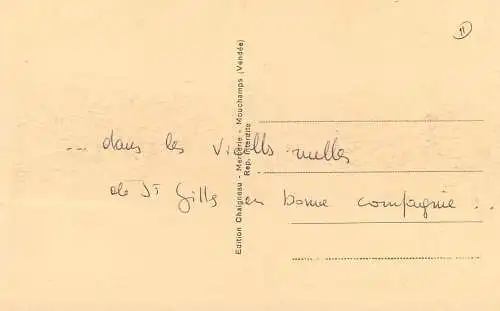 11
... dans les vieilles ruelles
de St Gilles en bonne compagnie..
Edition Chaigneau - Mercerie - Mouchamps (Vendée)
Rep. Interdite